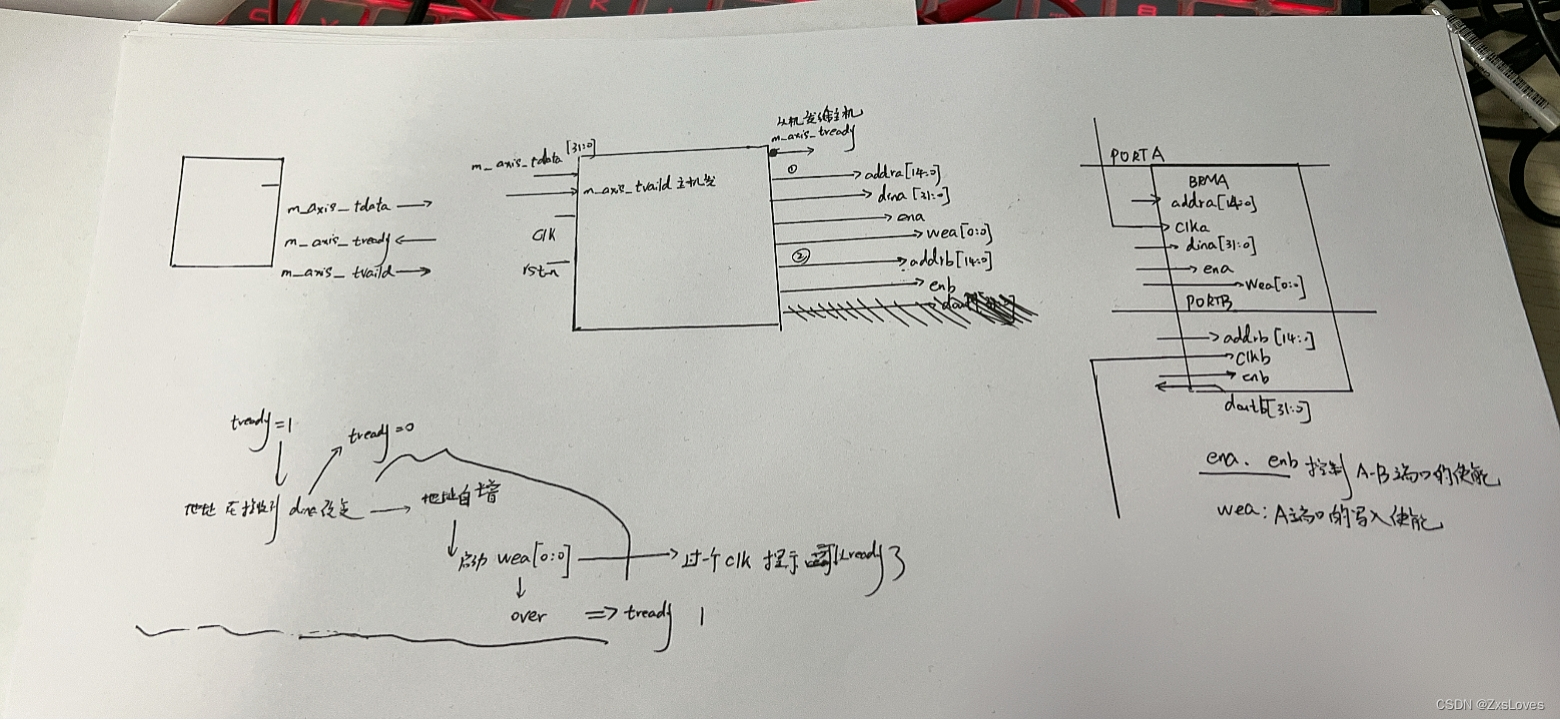 m_axis_tdata
m_axis_tready
m_axis_tvaild
m_axis_tdata [31:0]
m_axis_tvaild 主机发
clk
rstn
从机发给主机
m_axis_tready
①
addra[14:0]
dina [31:0]
ena
wea[0:0]
②
addrb[14:0]
enb
PORTA
BRMA
addra[14:0]
clka
dina[31:0]
ena
wea[0:0]
PORTB
addrb [14:0]
clkb
enb
doutb[31:0]
ena. enb 控制 A-B端口的使能
wea: A端口的写入使能
tready=1
tready=0
地址 在接收到 dina 设定
地址自增
启动 wea[0:0]
过一个clk 提示 tready了
over => tready 1
CSDN @ZxsLoves